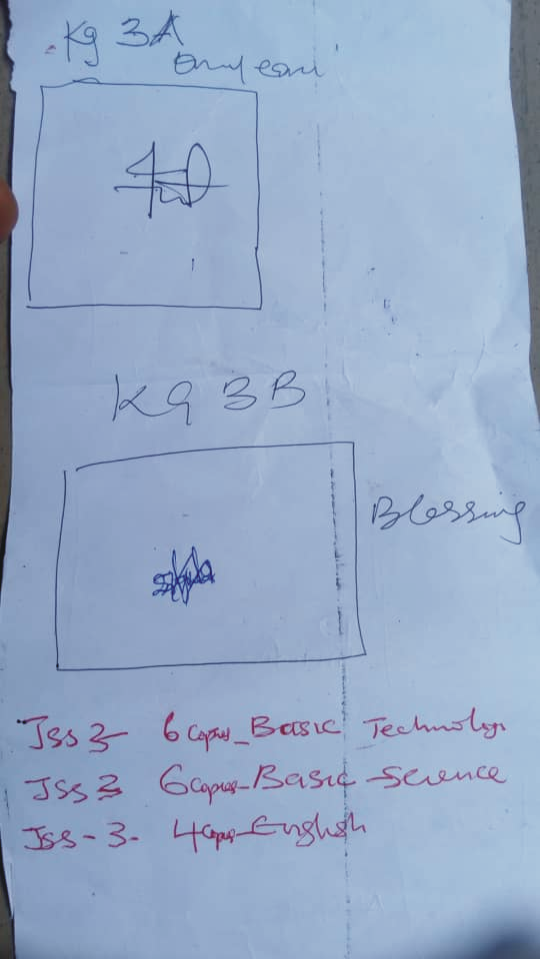 Kg 3A
KG 3B
Blessing
JSS 3 6 Copies - Basic Technology
JSS 3 6 Copies - Basic Science
JSS - 3 - 4 Copies - English